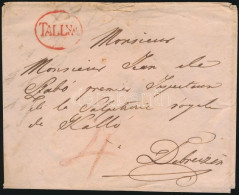 TALLYA
Monsieur
Monsieur Jean de
Szabo premier Inspecteur
de la Salpetrerie royal
de Kallo
Debreczin